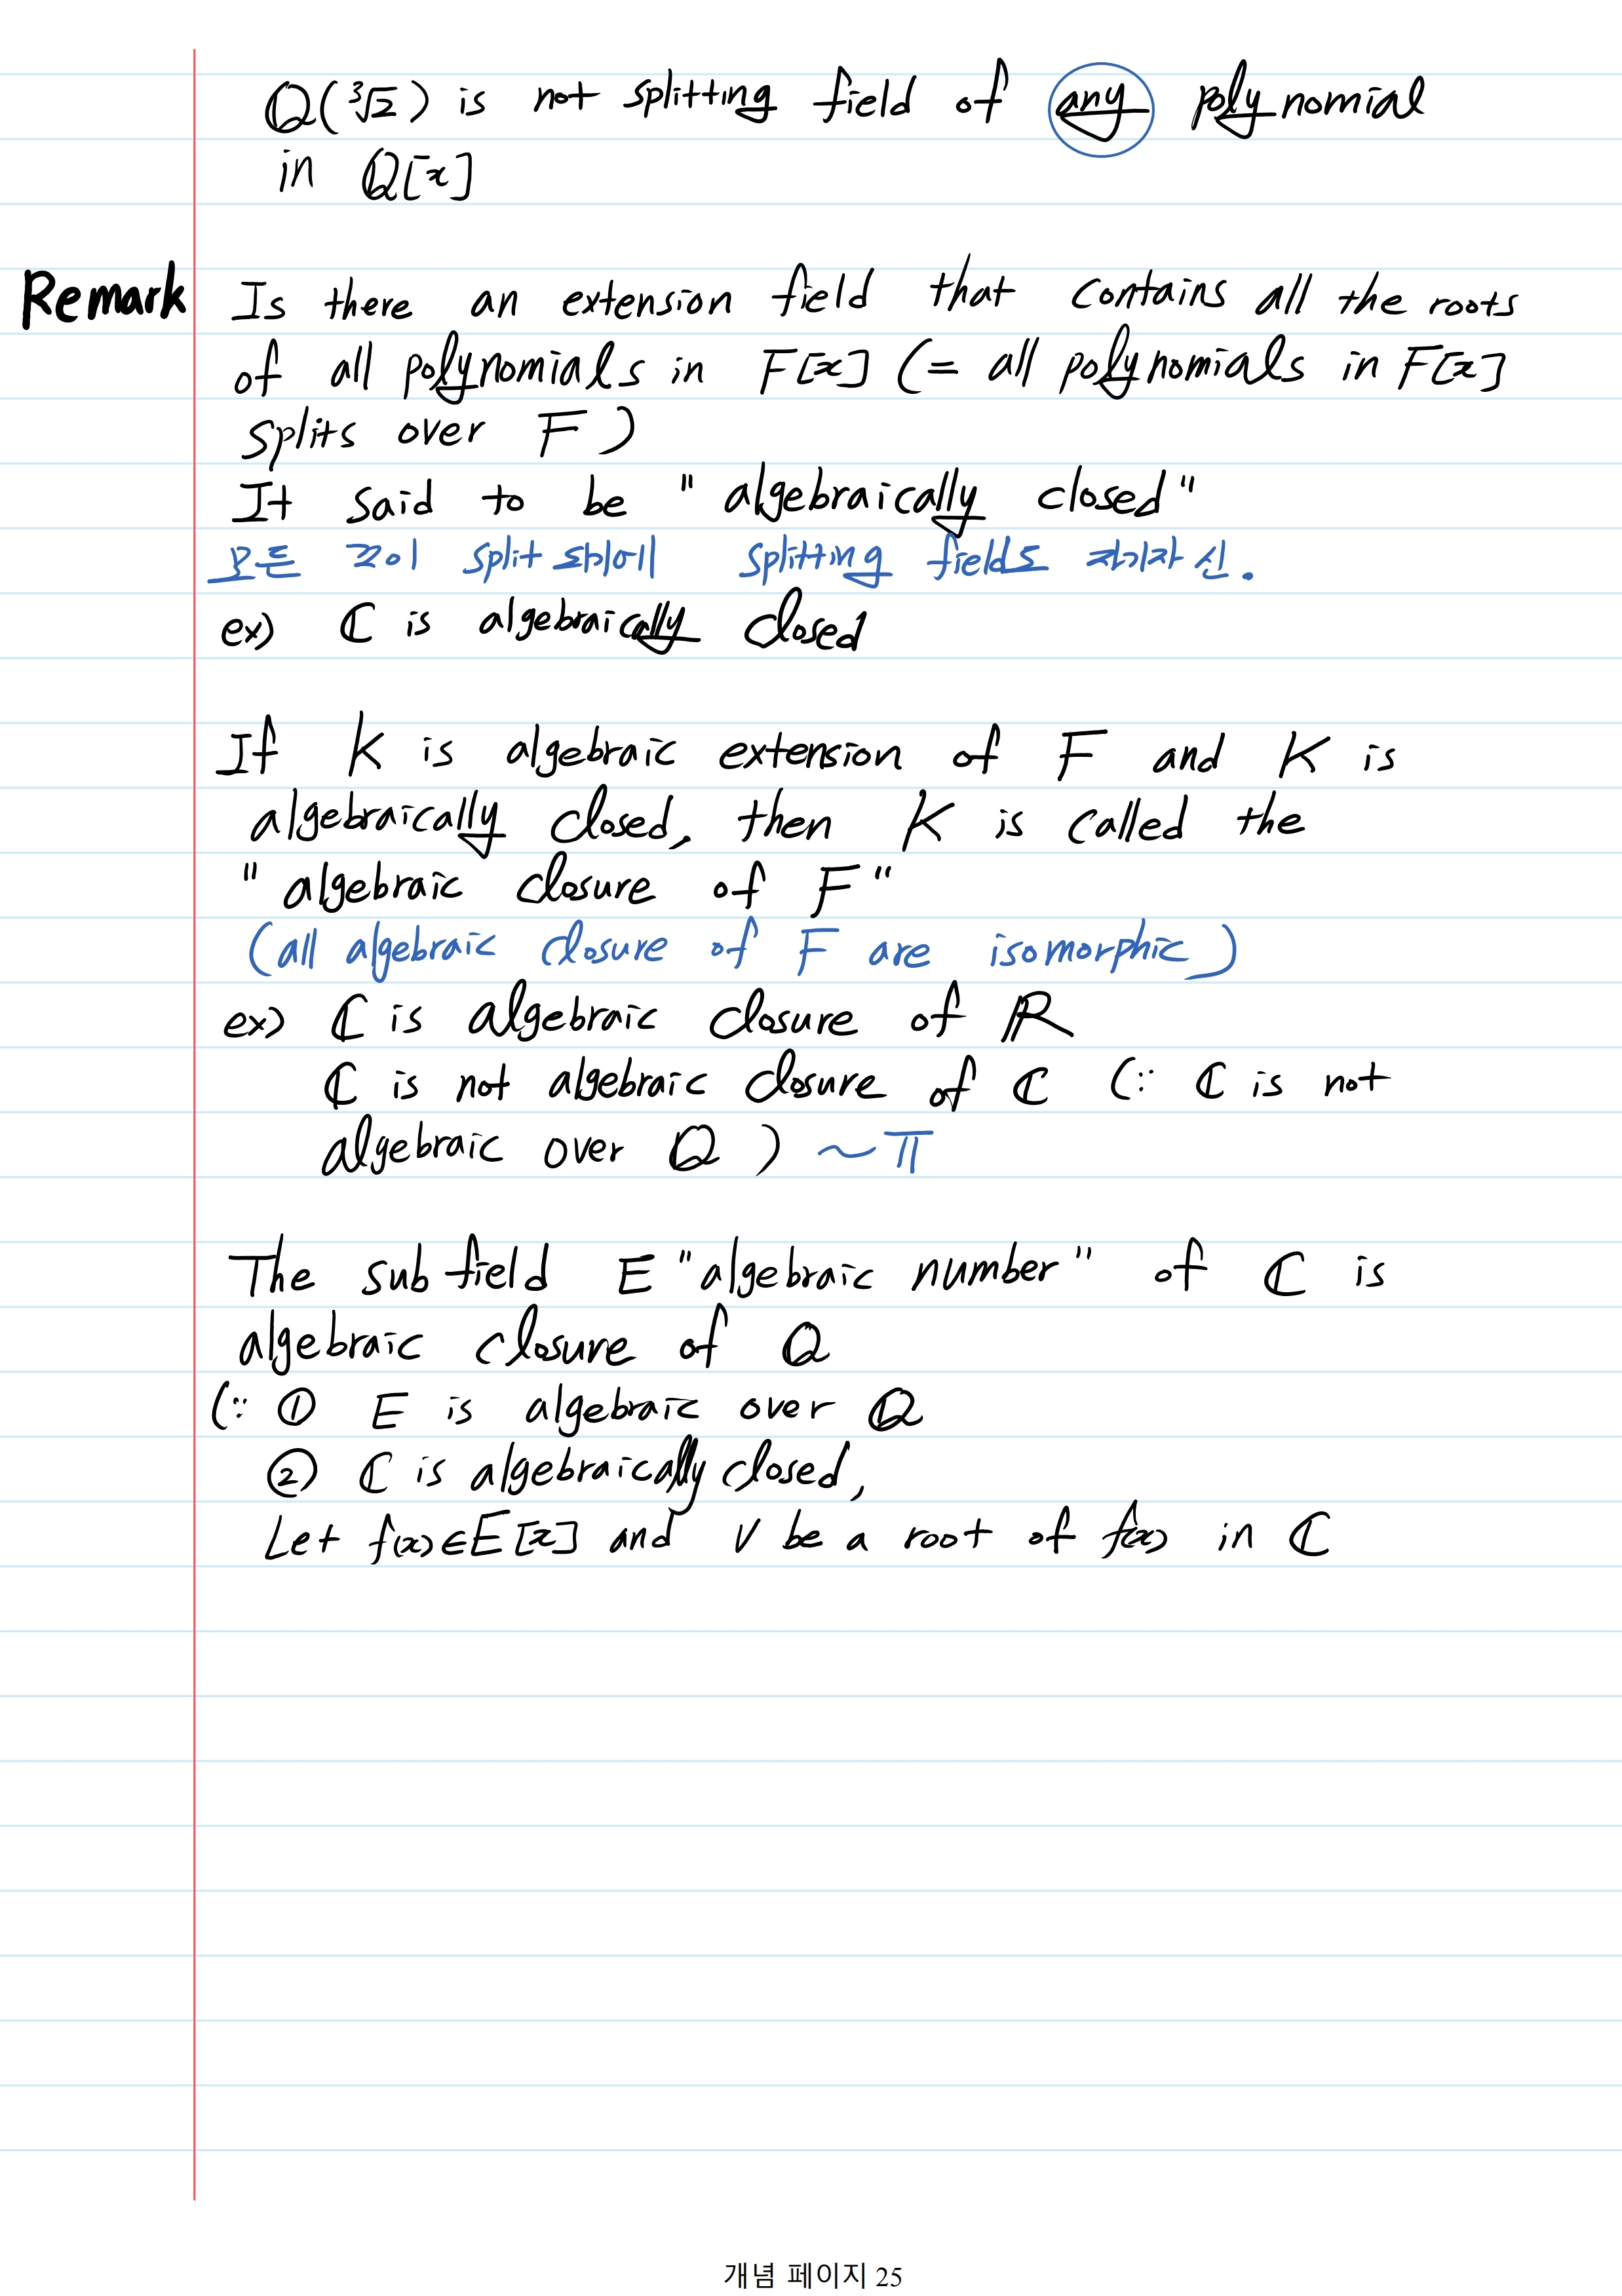 Q(∛2) is not splitting field of any polynomial
in Q[x]
Remark Is there an extension field that contains all the roots
of all polynomials in F[x] (= all polynomials in F[x]
splits over F)
It said to be "algebraically closed"
모든 것이 split 되어 splitting field도 자기자신.
ex) ℂ is algebraically closed
If K is algebraic extension of F and K is
algebraically closed, then K is called the
"algebraic closure of F"
(all algebraic closure of F are isomorphic)
ex) ℂ is algebraic closure of ℝ
ℂ is not algebraic closure of ℂ (∵ ℂ is not
algebraic over Q) ~π
The subfield E "algebraic number" of ℂ is
algebraic closure of Q
(∵ ① E is algebraic over Q
② ℂ is algebraically closed,
Let f(x)∈E[x] and v be a root of f(x) in ℂ
개념 페이지 25